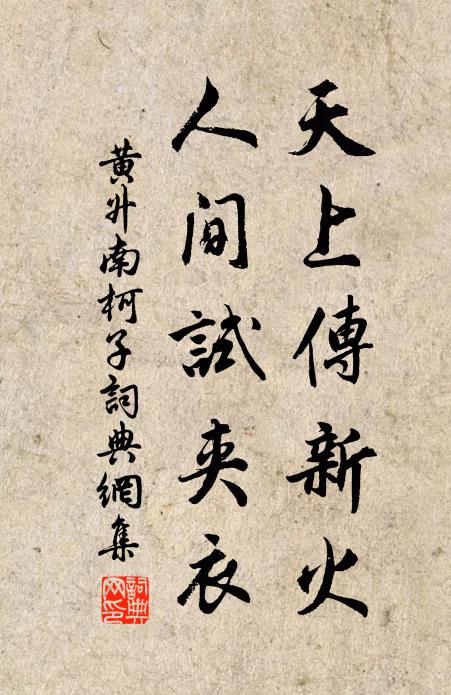 天上傳新火
人間試夾衣
黄升南柯子詞典網集
詞典网印